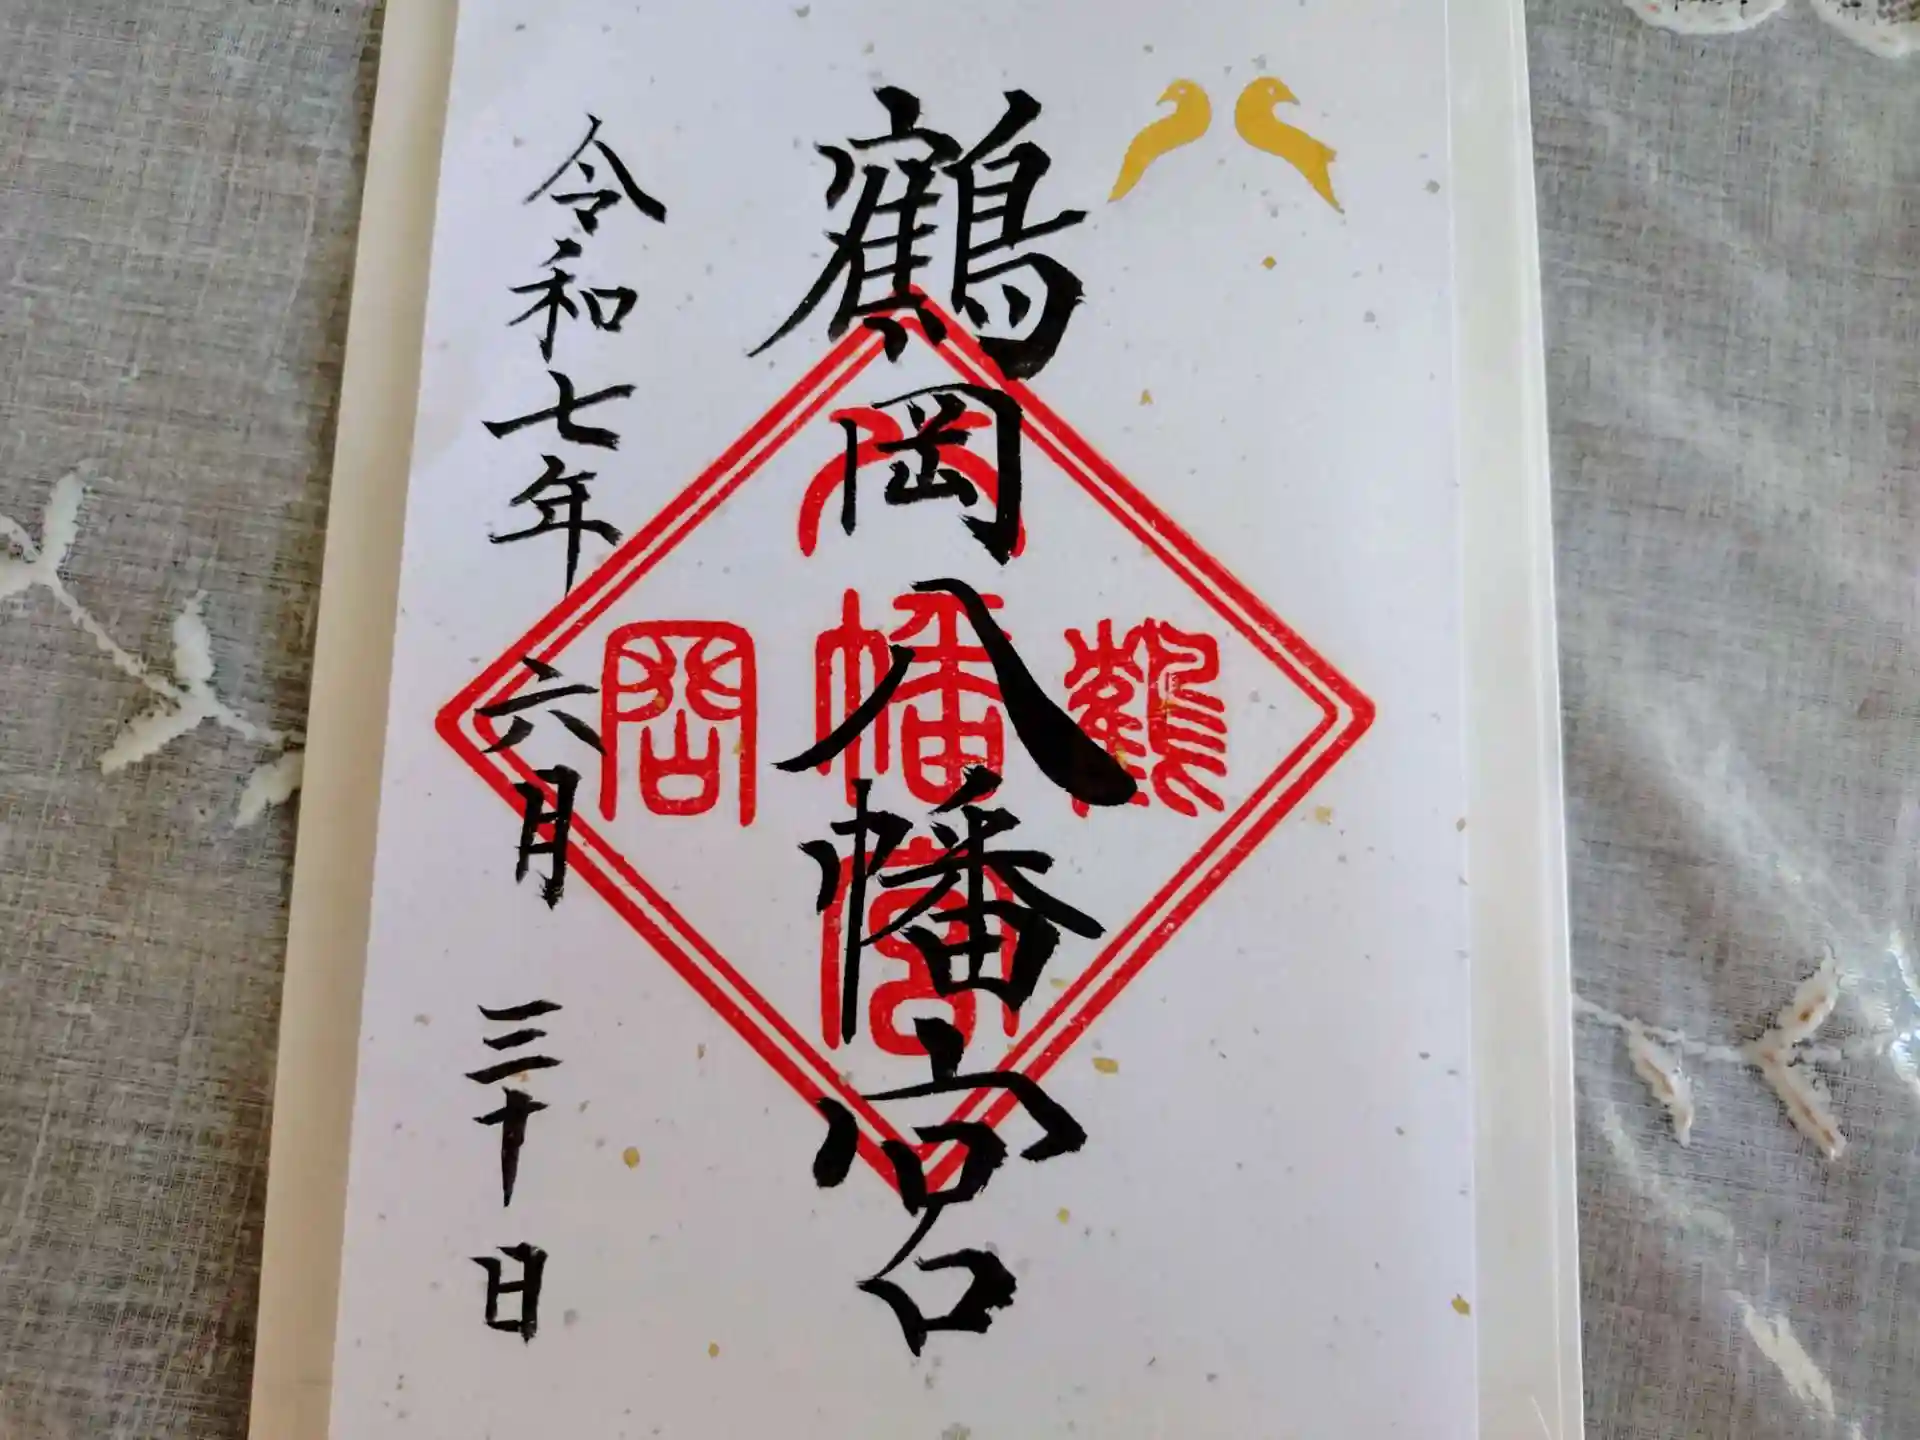 鶴岡八幡宮
令和七年六月三十日
鶴
八
幡
宮
岡